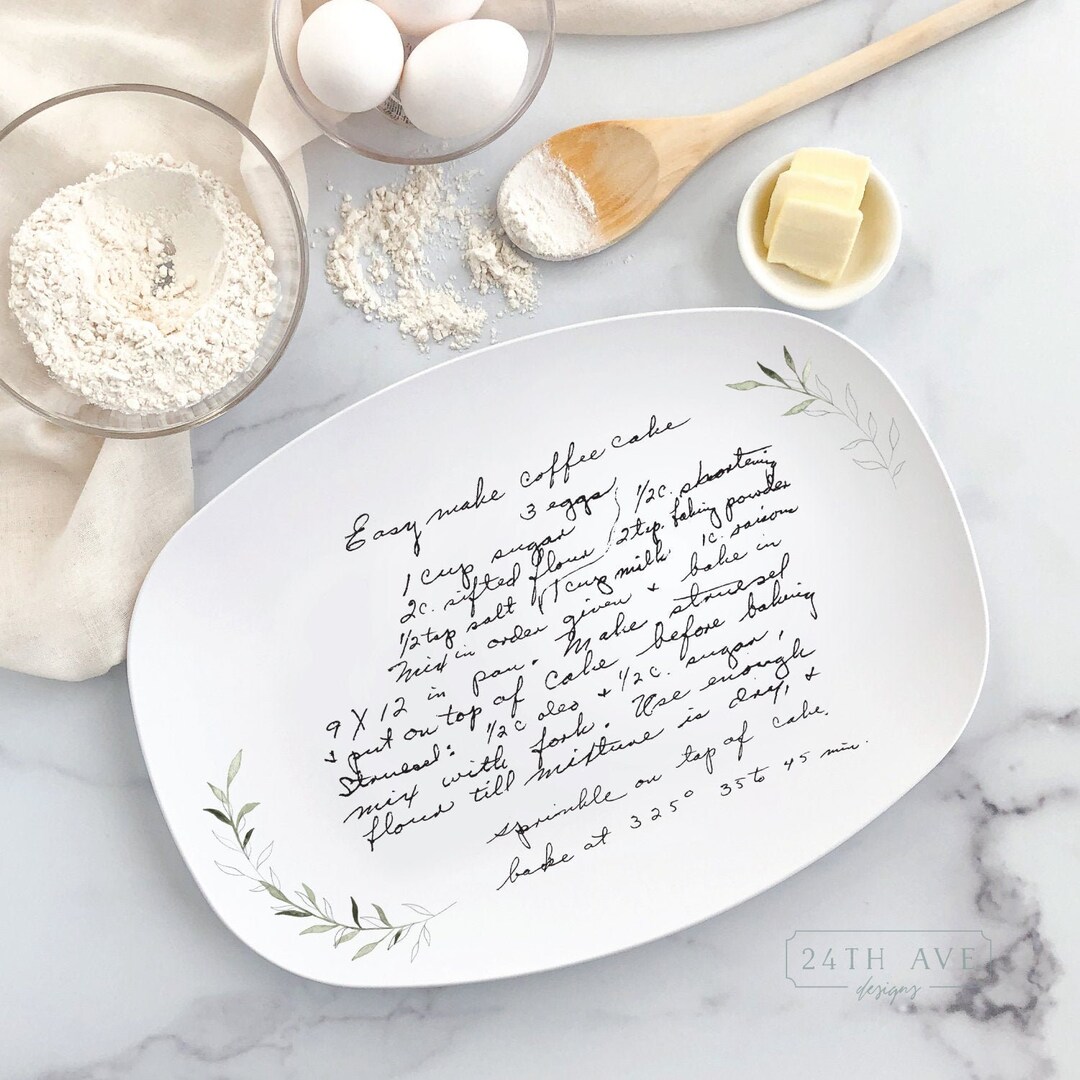 Easy make coffee cake
3 eggs
1 cup sugar 1/2c. shortening
2c. sifted flour 2tsp. baking powder
1/2 tsp salt 1 cup milk 1c. raisins
Mix in order given + bake in
9 X 12 in pan. Make struesel
+ put on top of cake before baking
Struesel: 1/2 c oleo + 1/2 c. sugar,
mix with fork. Use enough
flour till mixture is dry, +
sprinkle on top of cake.
bake at 325° 35 to 45 min.
24TH AVE
designs